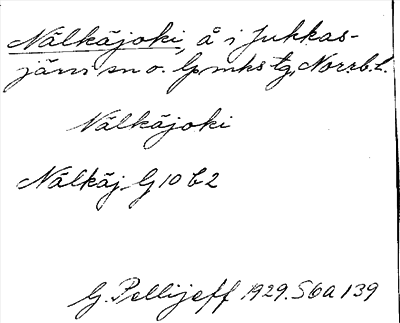 Nälkäjoki, å i Jukkas-
järvi sn o. lpmks tg, Norrb.l.
Nälkäjoki
Nälkäj. G 10 b 2
G. Pellijeff 1929. S 6a 139